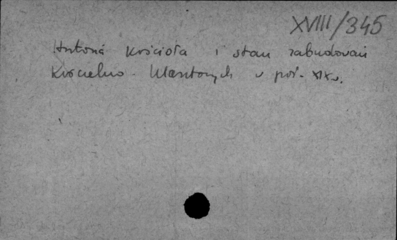 XVIII/345
Historia kościoła i stan zabudowań
Kościelno - klasztornych w poł. XIX w.